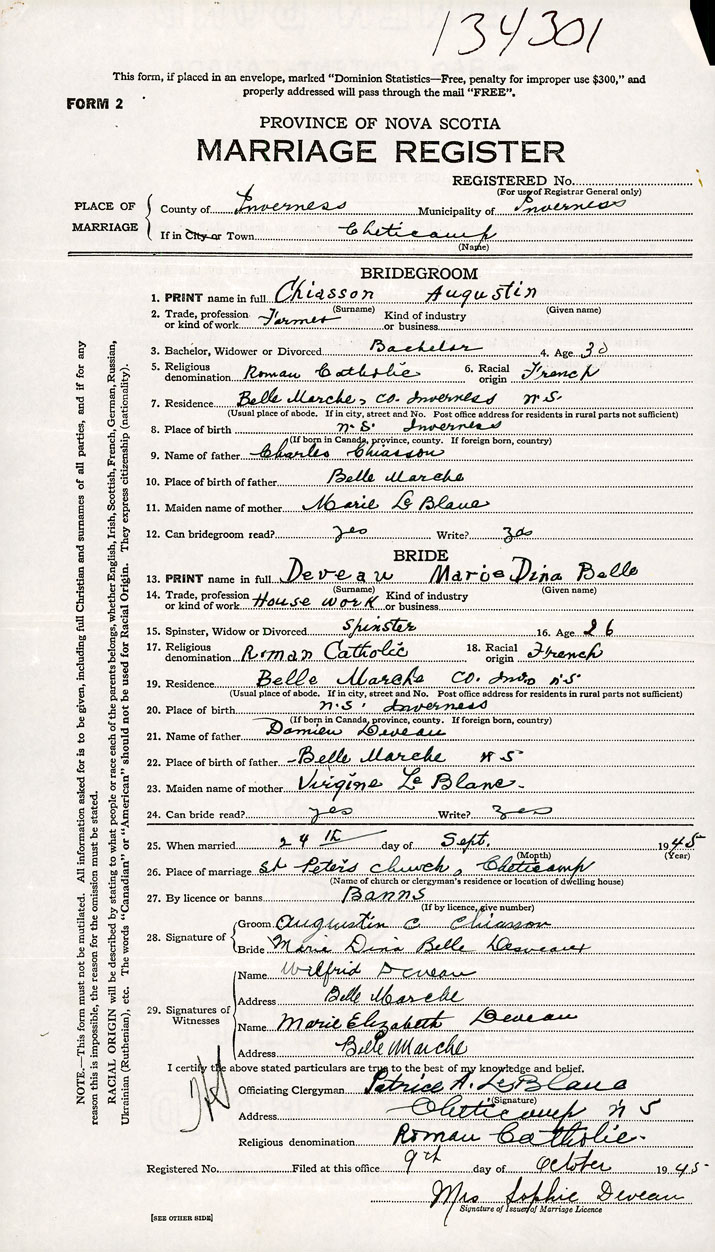 134301
This form, if placed in an envelope, marked "Dominion Statistics—Free, penalty for improper use $300," and
properly addressed will pass through the mail "FREE".
FORM 2
PROVINCE OF NOVA SCOTIA
MARRIAGE REGISTER
REGISTERED No.
(For use of Registrar General only)
PLACE OF MARRIAGE
County of Inverness Municipality of Inverness
If in City or Town Cheticamp
(Name)
BRIDEGROOM
1. PRINT name in full Chiasson Augustin
(Surname) (Given name)
2. Trade, profession or kind of work Farmer Kind of industry or business
3. Bachelor, Widower or Divorced Bachelor 4. Age 30
5. Religious denomination Roman Catholic 6. Racial origin French
7. Residence Belle Marche, co. Inverness N.S.
(Usual place of abode. If in city, street and No. Post office address for residents in rural parts not sufficient)
8. Place of birth N.S. Inverness
(If born in Canada, province, county. If foreign born, country)
9. Name of father Charles Chiasson
10. Place of birth of father Belle Marche
11. Maiden name of mother Marie Le Blanc
12. Can bridegroom read? yes Write? yes
BRIDE
13. PRINT name in full Deveau Marie Dina Belle
(Surname) (Given name)
14. Trade, profession or kind of work House work Kind of industry or business
15. Spinster, Widow or Divorced Spinster 16. Age 26
17. Religious denomination Roman Catholic 18. Racial origin French
19. Residence Belle Marche co. N.S.
(Usual place of abode. If in city, street and No. Post office address for residents in rural parts not sufficient)
20. Place of birth N.S. Inverness
(If born in Canada, province, county. If foreign born, country)
21. Name of father Damien Deveau
22. Place of birth of father Belle Marche N S
23. Maiden name of mother Virgine Le Blanc.
24. Can bride read? yes Write? yes
25. When married 24th day of Sept. 1945
(Month) (Year)
26. Place of marriage St Peter's church, Cheticamp
(Name of church or clergyman's residence or location of dwelling house)
27. By licence or banns Banns
(If by licence, give number)
28. Signature of
Groom Augustin C Chiasson
Bride Marie Dina Belle Desveaux
29. Signatures of Witnesses
Name Wilfrid Deveau
Address Belle Marche
Name Marie Elizabeth Deveau
Address Belle Marche
I certify the above stated particulars are true to the best of my knowledge and belief.
Officiating Clergyman Patrice A. LeBlanc
(Signature)
Address Cheticamp N S
Religious denomination Roman Catholic.
Registered No. Filed at this office 9th day of October 1945
Mrs Sophie Deveau
Signature of Issuer of Marriage Licence
[SEE OTHER SIDE]
NOTE.—This form must not be mutilated. All information asked for is to be given, including full Christian and surnames of all parties, and if for any
reason this is impossible, the reason for the omission must be stated.
RACIAL ORIGIN will be described by stating to what people or race each of the parents belongs, whether English, Irish, Scottish, French, German, Russian,
Ukrainian (Ruthenian), etc. The words "Canadian" or "American" should not be used for Racial Origin. They express citizenship (nationality).